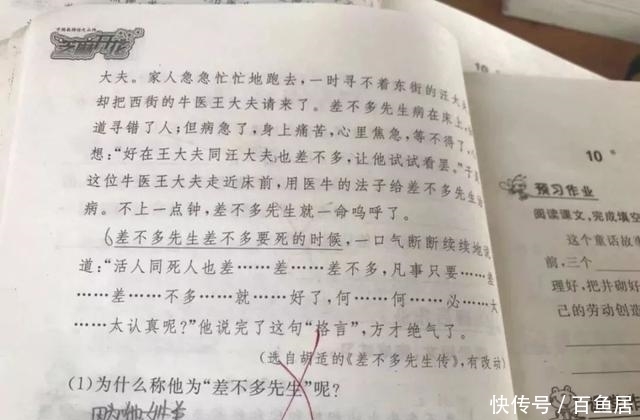 芝麻开花
大夫。家人急急忙忙地跑去，一时寻不着东街的汪大夫
却把西街的牛医王大夫请来了。差不多先生病在床上，
道寻错了人；但病急了，身上痛苦，心里焦急，等不得了，
想：“好在王大夫同汪大夫也差不多，让他试试看罢。”于
这位牛医王大夫走近床前，用医牛的法子给差不多先生
病。不上一点钟，差不多先生就一命呜呼了。
差不多先生差不多要死的时候，一口气断断续续地说
道：“活人同死人也差……差……差不多，凡事只要……差
……差……不多……就……好了，何……何……必……太
……太认真呢？”他说完了这句“格言”，方才绝气了。
（选自胡适的《差不多先生传》，有改动）
(1)为什么称他为“差不多先生”呢？
因为他姓差
10
10
预习作业
阅读课文，完成填空
这个童话故
前，三个
理好，把井砌好
己的劳动创造
快传号／百鱼居